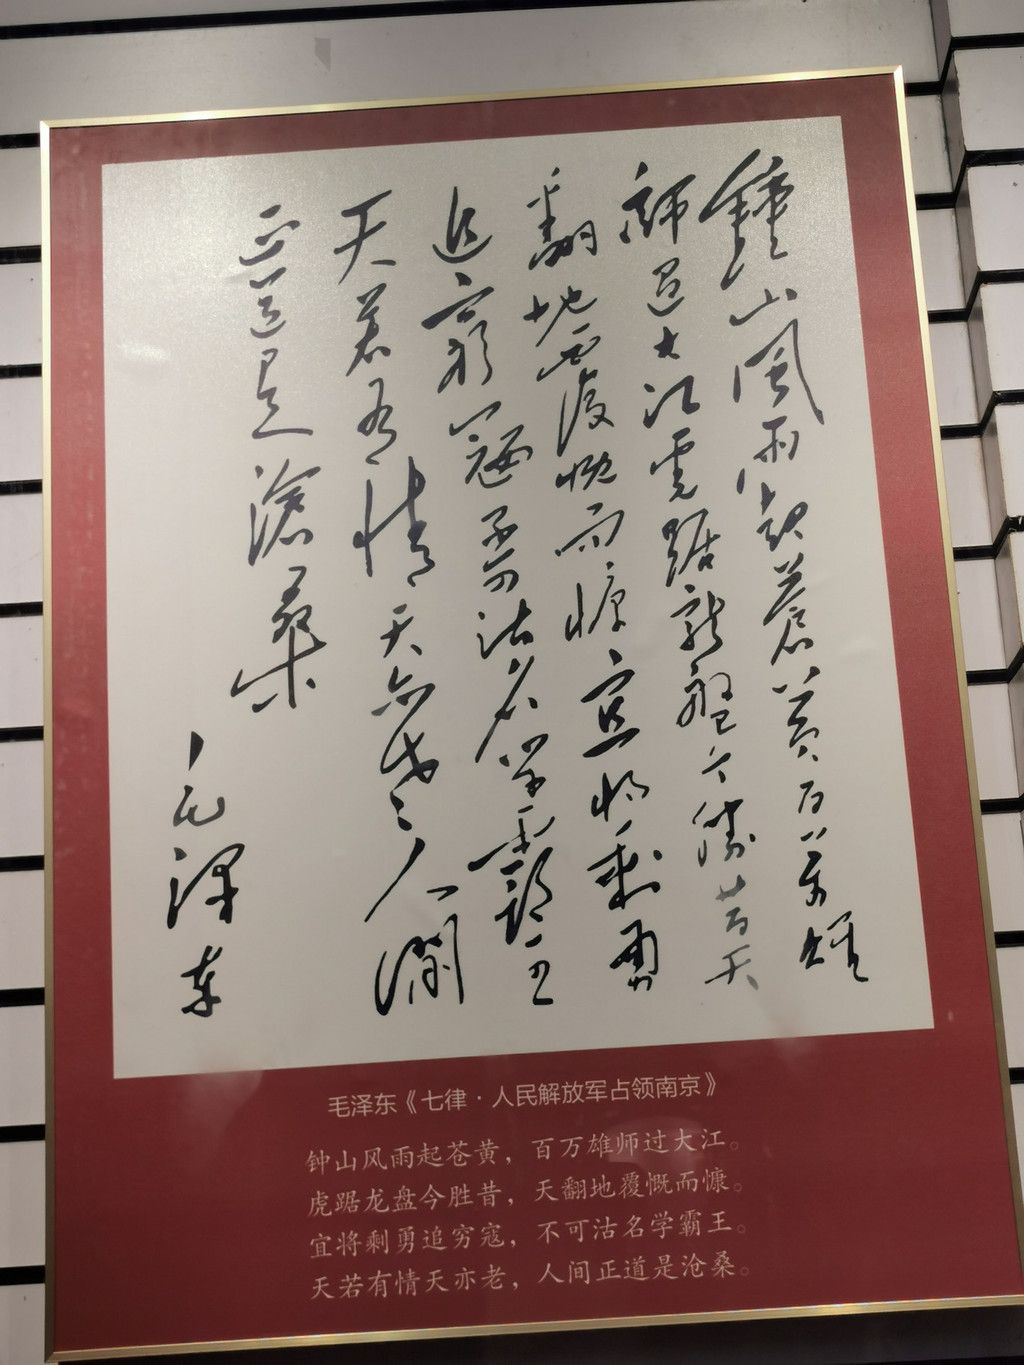 鍾山風雨起蒼黄百万雄
師过大江虎踞龙盤今勝昔天
翻地覆慨而慷宜将剩勇
追窮寇不可沽名学霸王
天若有情天亦老人间
正道是滄桑
毛泽东
毛泽东《七律·人民解放军占领南京》
钟山风雨起苍黄，百万雄师过大江。
虎踞龙盘今胜昔，天翻地覆慨而慷。
宜将剩勇追穷寇，不可沽名学霸王。
天若有情天亦老，人间正道是沧桑。